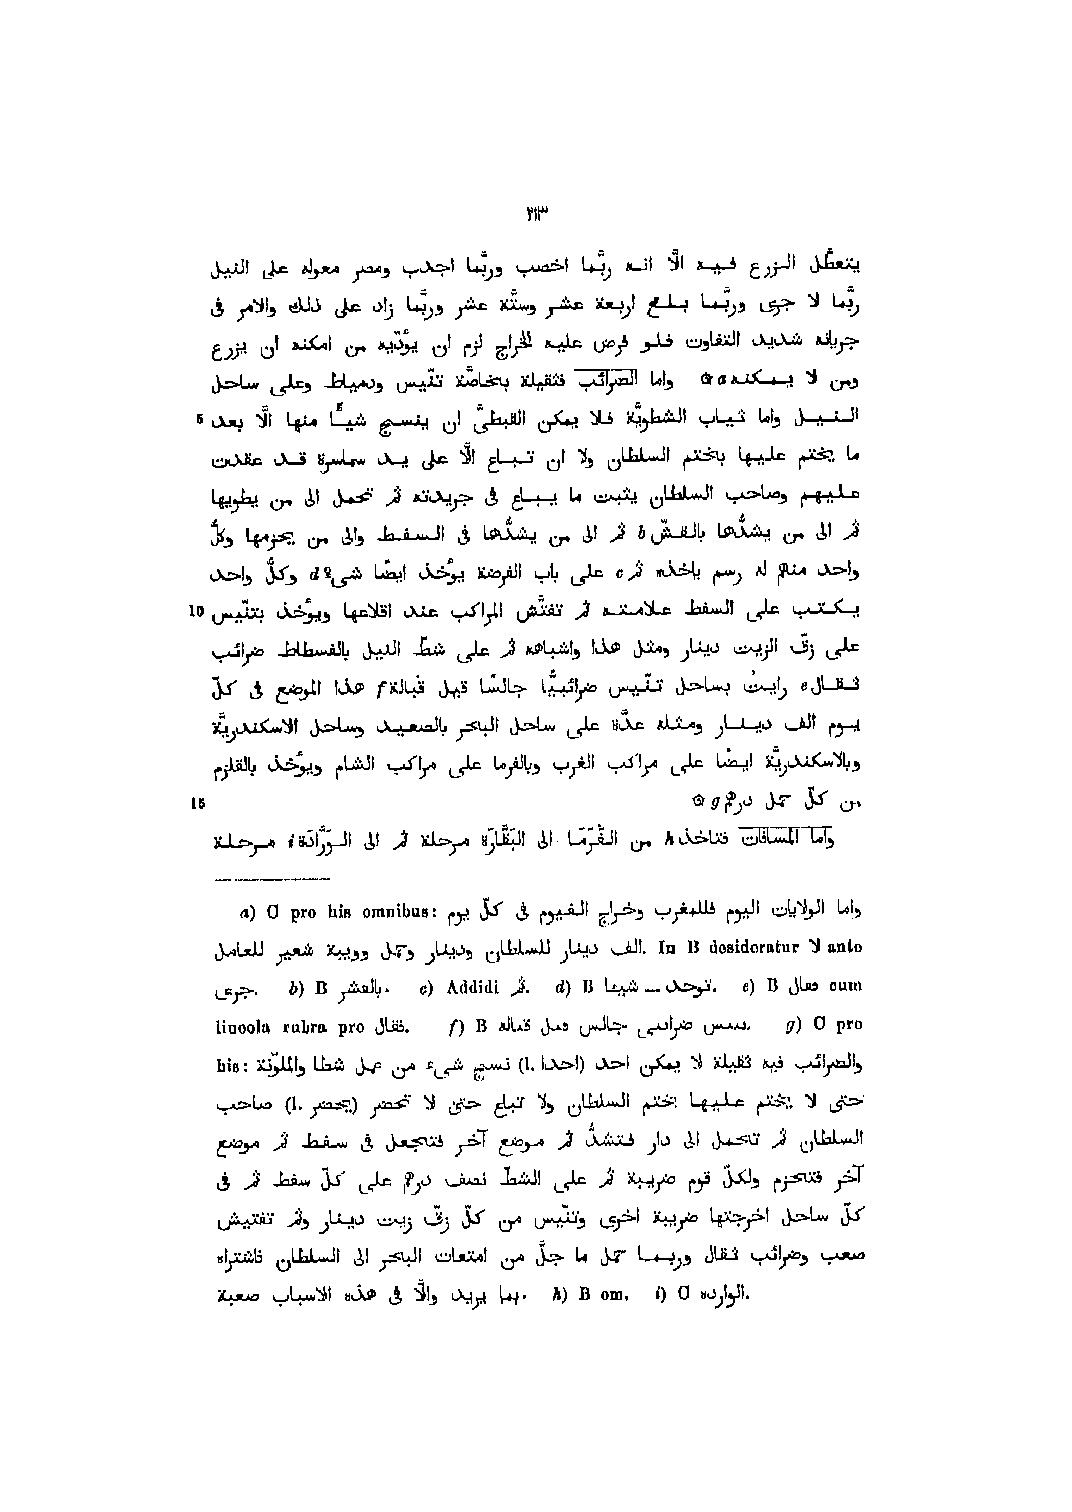 ٢١٣
يتعطّل الزرع فيه الّا انه ربّما اخصب وربّما اجدب ومصر معوله على النيل
ربّما لا جرى وربّما بلغ اربعة عشر وستّة عشر وربّما زاد على ذلك والامر فى
جريانه شديد التفاوت فلو فرض عليه الخراج لزم ان يودّيه من امكنه ان يزرع
ومن لا يمكنه a ۞ واما الضرائب فثقيلة بخاصّة تنّيس ودمياط وعلى ساحل
النيل واما ثياب الشطويّة فلا يمكن القبطىّ ان ينسج شيئًا منها الّا بعد 5
ما يختم عليها بختم السلطان ولا ان تباع الّا على يد سماسرة قد عقدت
عليهم وصاحب السلطان يثبت ما يباع فى جريدته ثم تحمل الى من يطويها
ثم الى من يشدّها بالقشّ b ثم الى من يشدّها فى السفط والى من يحزمها وكلّ
واحد منهم له رسم ياخذه ثم c على باب الفرضة يؤخذ ايضًا شىء d وكلّ واحد
يكتب على السفط علامته ثم تفتّش المراكب عند اقلاعها ويؤخذ بتنّيس 10
على زقّ الزيت دينار ومثل هذا واشباهه ثم على شطّ النيل بالفسطاط ضرائب
ثقال e رايتُ بساحل تنّيس ضرائبيًّا جالسًا قيل قبالة f هذا الموضع فى كلّ
يوم الف دينار ومثله عدّة على ساحل البحر بالصعيد وساحل الاسكندريّة
وبالاسكندريّة ايضًا على مراكب الغرب وبالفرما على مراكب الشام ويؤخذ بالقلزم
من كلّ حمل درهم g ۞ 15
وأما المسافات فتاخذ h من الفَرَمَا الى البَقَّارَة مرحلة ثم الى الوَرَّادَة i مرحلة
a) C pro his omnibus: واما الولايات اليوم فللمغرب وخراج الفيوم فى كلّ يوم
الف دينار للسلطان ودينار وحمل وويبة شعير للعامل. In B desideratur لا ante
جرى. b) B بالعشر. c) Addidi ثم. d) B توخذ — شيئا. e) B معال cum
lineola rubra pro ثقال. f) B سس ضراىبى جالس مىل قىاله. g) C pro
his: والضرائب فيه ثقيلة لا يمكن احد (l. احدا) نسج شىء من عمل شطا والملوّنة
حتى لا يختم عليها بختم السلطان ولا تباع حتى لا تحضر (l. يحضر) صاحب
السلطان ثم تحمل الى دار فتشدّ ثم موضع آخر فتجعل فى سفط ثم موضع
آخر فتحزم ولكلّ قوم ضريبة ثم على الشطّ نصف درهم على كلّ سفط ثم فى
كلّ ساحل اخرجتها ضريبة اخرى وتنّيس من كلّ زقّ زيت دينار وثم تفتيش
صعب وضرائب ثقال وربما حمل ما جلّ من امتعات البحر الى السلطان فاشتراه
بما يريد والّا فى هذه الاسباب صعبة. h) B om. i) C الوارده.